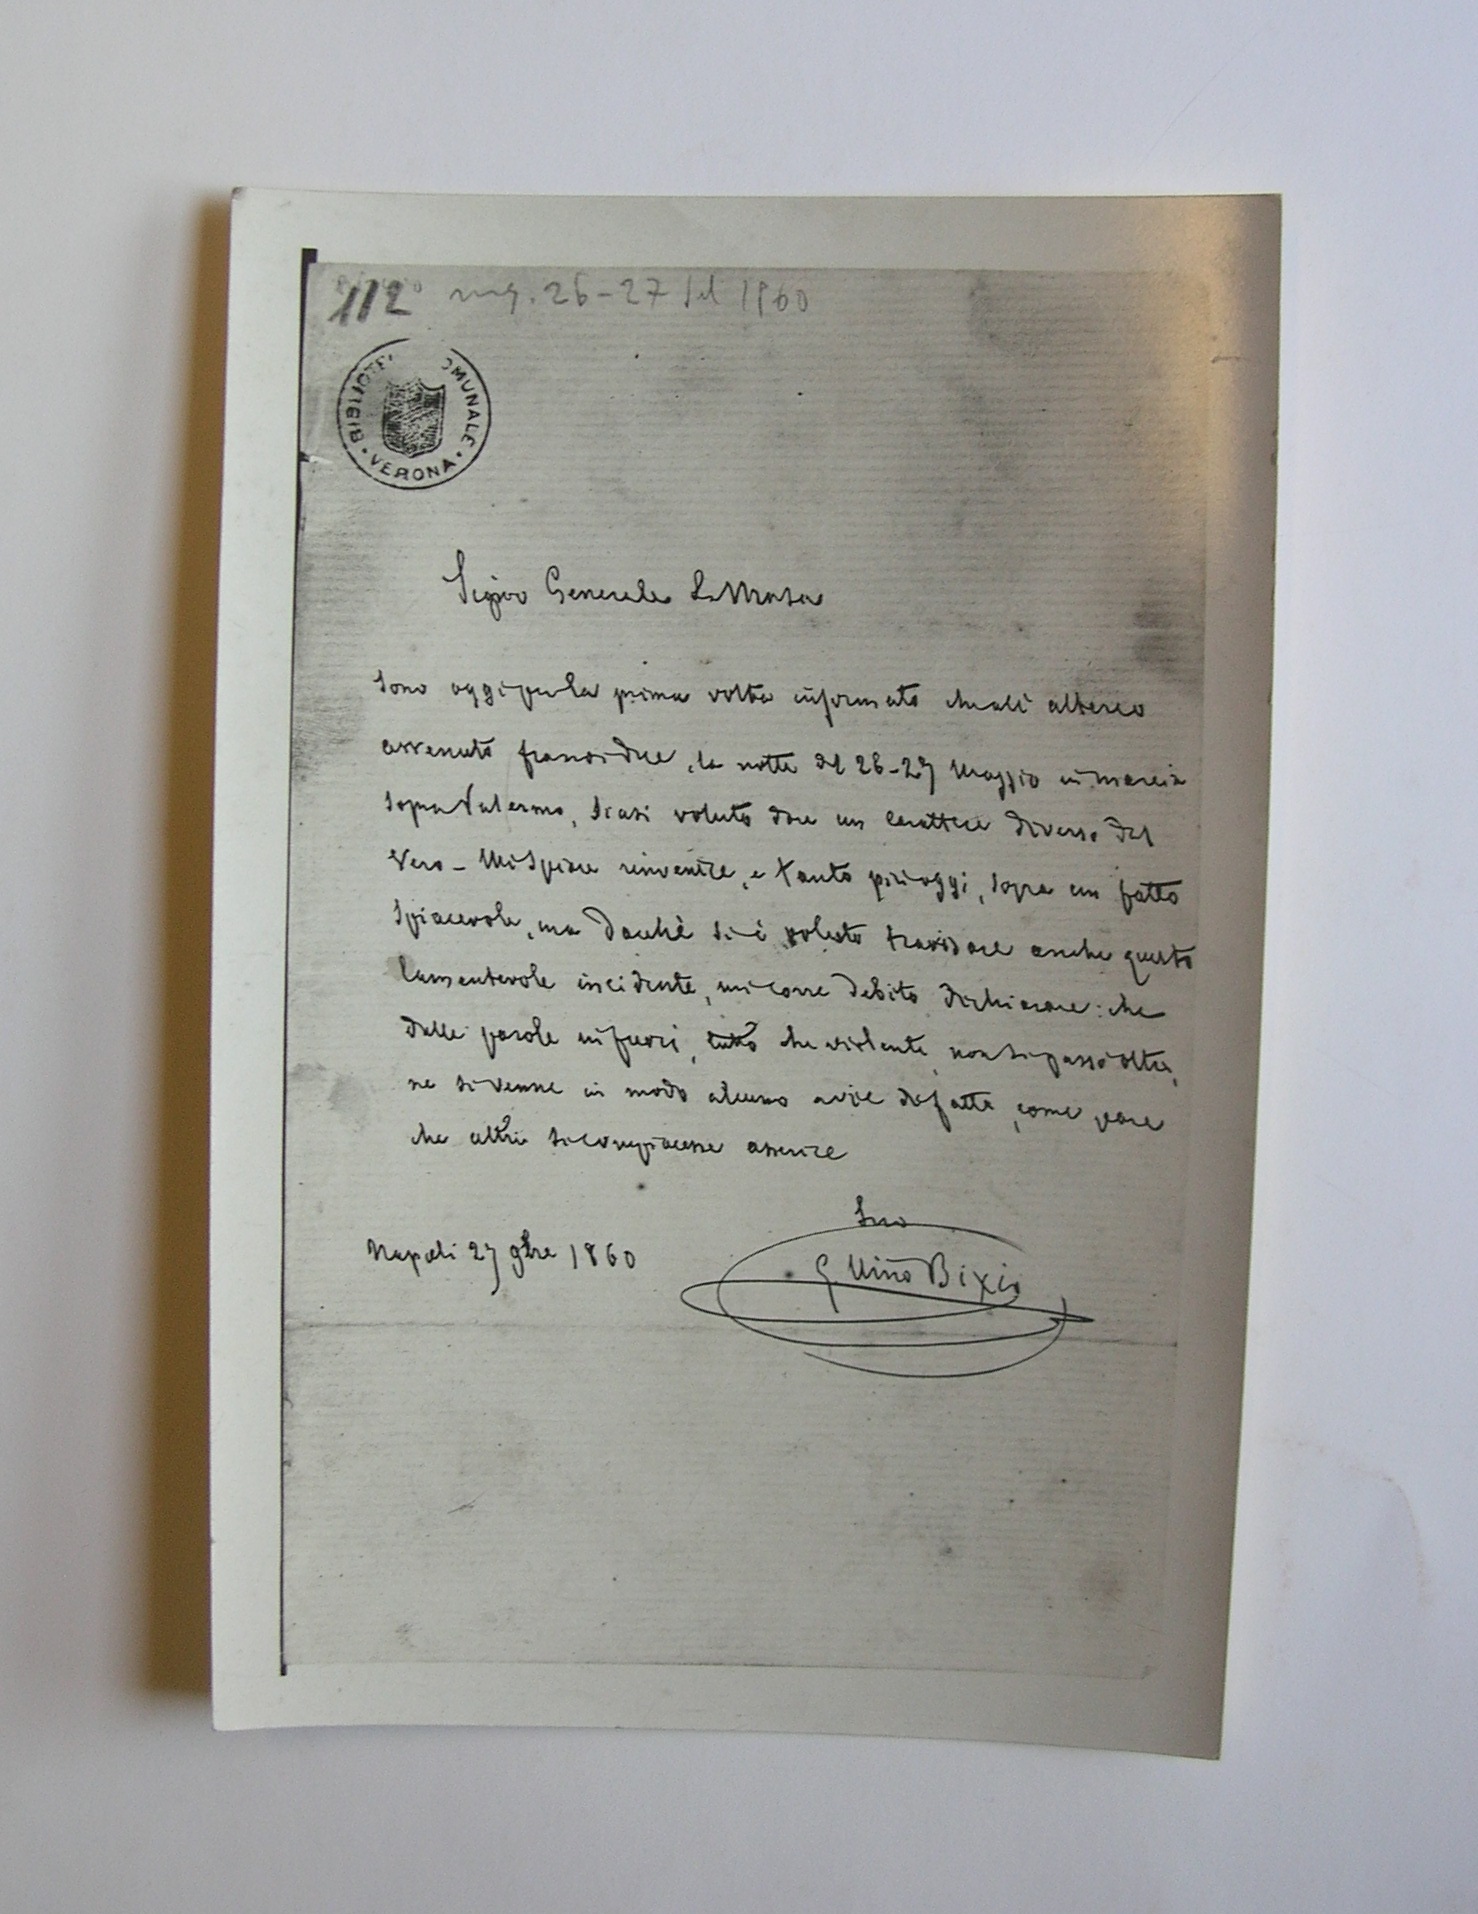 112 mag. 26-27 del 1860
BIBLIOTE OMUNALE
VERONA
Signor Generale La Masa
Sono oggi per la prima volta informato che all' alterco
avvenuto fra noi due, la notte del 26-27 Maggio in marcia
sopra Palermo, siasi voluto dare un carattere diverso dal
Vero - Mi spiace rinvenire, e tanto più oggi, sopra un fatto
spiacevole, ma dacchè si è voluto travisare anche questo
lamentevole incidente, mi corre debito dichiarare: che
dalle parole in fuori, tutto che violente, non si passò oltre,
ne si venne in modo alcuno a vie di fatto, come pare
che altri si compiacesse asserire
Suo
Napoli 27 9bre 1860
G. Nino Bixio